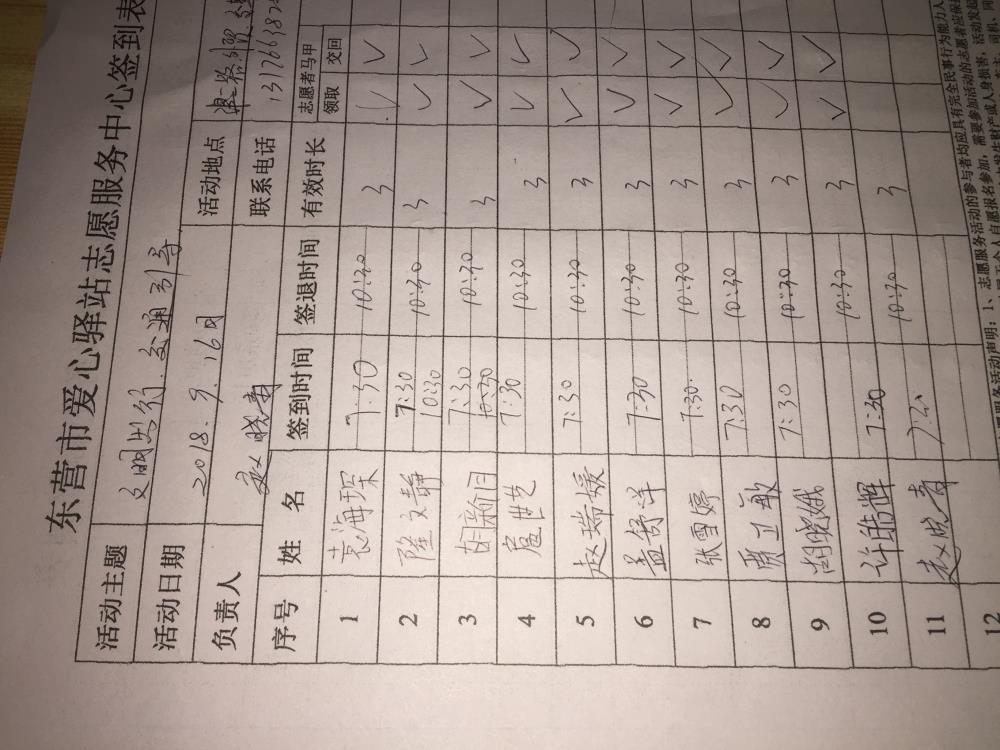 东营市爱心驿站志愿服务中心签到表
活动主题 文明出行.交通引导
活动日期 2018.9.16日 活动地点
负责人 赵晓青 联系电话
序号 姓名 签到时间 签退时间 有效时长 志愿者马甲 领取 交回
1 袁海琛 7:30 10:30 3 ✓ ✓
2 隆文静 7:30 10:30 10:30 3 ✓ ✓
3 胡新目 7:30 10:30 10:30 3 ✓ ✓
4 扈世艺 7:30 10:30 3 ✓ ✓
5 赵瑞媛 7:30 10:30 3 ✓ ✓
6 孟舒洋 7:30 10:30 3 ✓ ✓
7 张雪婷 7:30 10:30 3 ✓ ✓
8 贾卫敏 7:30 10:30 3 ✓ ✓
9 胡晓娥 7:30 10:30 3 ✓ ✓
10 许维辉 7:30 10:30 3
11 赵晓青 7:20 10:30 3
12
志愿服务活动声明：1、志愿服务活动的参与者均应具有完全民事行为能力人